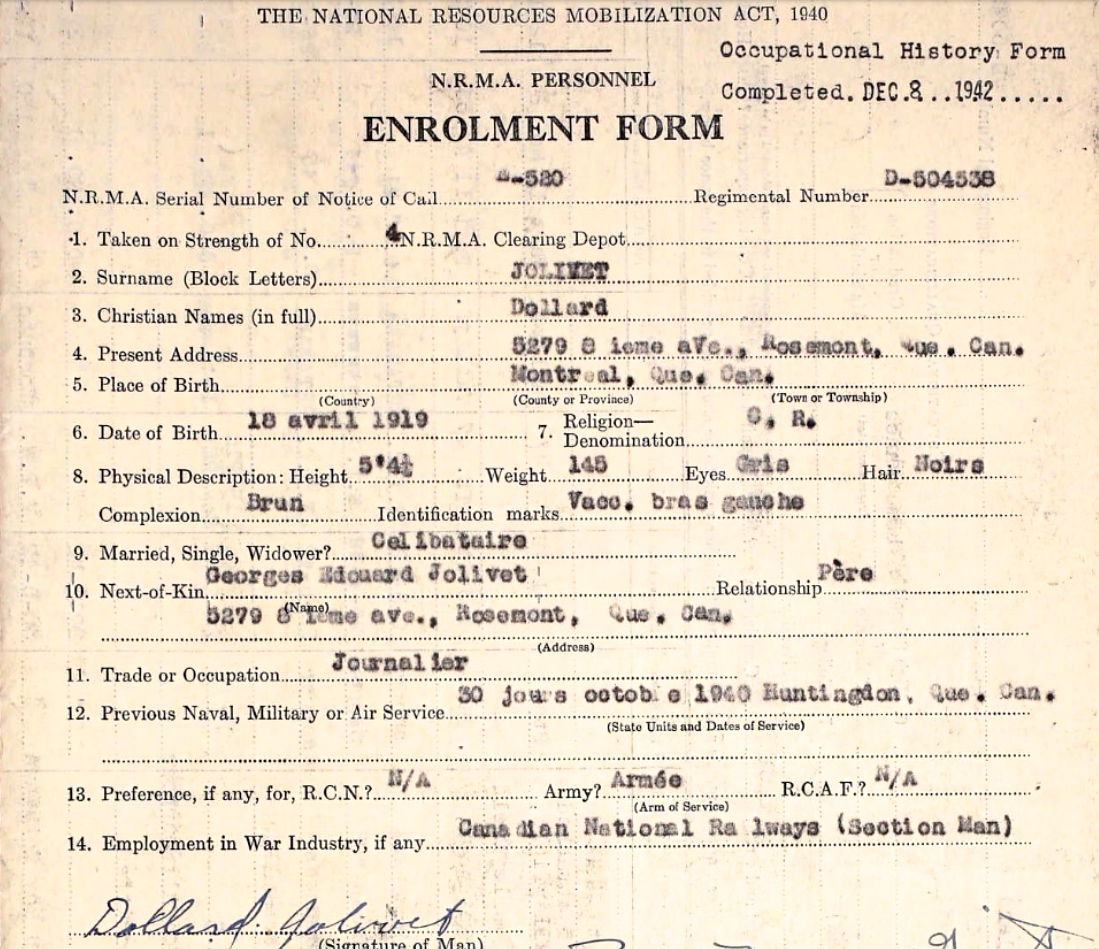 THE NATIONAL RESOURCES MOBILIZATION ACT, 1940
Occupational History Form
N.R.M.A. PERSONNEL
Completed. DEC. 8 . . 1942 . . . . .
ENROLMENT FORM
N.R.M.A. Serial Number of Notice of Call -520 Regimental Number D-504538
1. Taken on Strength of No. 4 N.R.M.A. Clearing Depot
2. Surname (Block Letters) JOLIVET
3. Christian Names (in full) Dollard
4. Present Address 5279 8 ieme aVe., Rosemont, Que. Can.
5. Place of Birth Montreal, Que. Can.
(Country) (County or Province) (Town or Township)
6. Date of Birth 18 avril 1919 7. Religion—
Denomination C. R.
8. Physical Description: Height 5'4½ Weight 145 Eyes Gris Hair Noirs
Complexion Brun Identification marks Vacc. bras gauche
9. Married, Single, Widower? Celibataire
10. Next-of-Kin Georges Edouard Jolivet Relationship Père
(Name)
5279 8 ieme ave., Rosemont, Que. Can.
(Address)
11. Trade or Occupation Journalier
12. Previous Naval, Military or Air Service 30 jours octobre 1940 Huntingdon, Que. Can.
(State Units and Dates of Service)
13. Preference, if any, for, R.C.N.? N/A Army? Armée R.C.A.F.? N/A
(Arm of Service)
14. Employment in War Industry, if any Canadian National Ra lways (Section Man)
Dollard Jolivet
(Signature of Man)